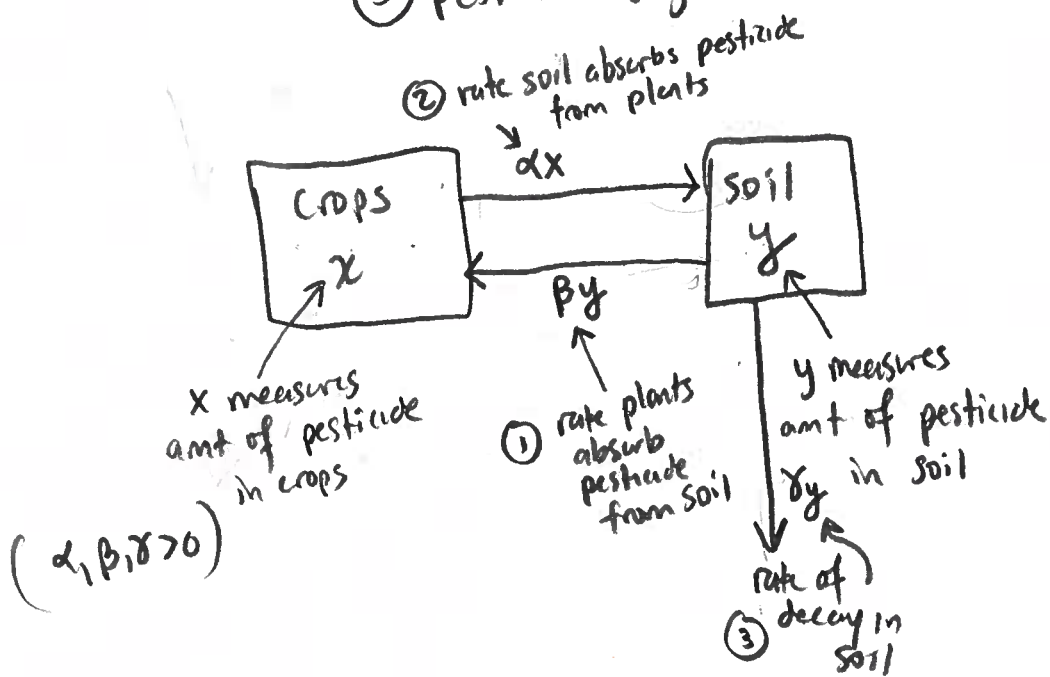 ③
② rate soil absorbs pesticide
from plants
αx
Crops
x
soil
y
βy
x measures
amt of pesticide
in crops
① rate plants
absorb
pesticide
from soil
y measures
amt of pesticide
in soil
γy
(α, β, γ > 0)
rate of
decay in
soil
③